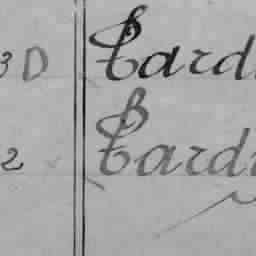 3 D Bard
2 Bard